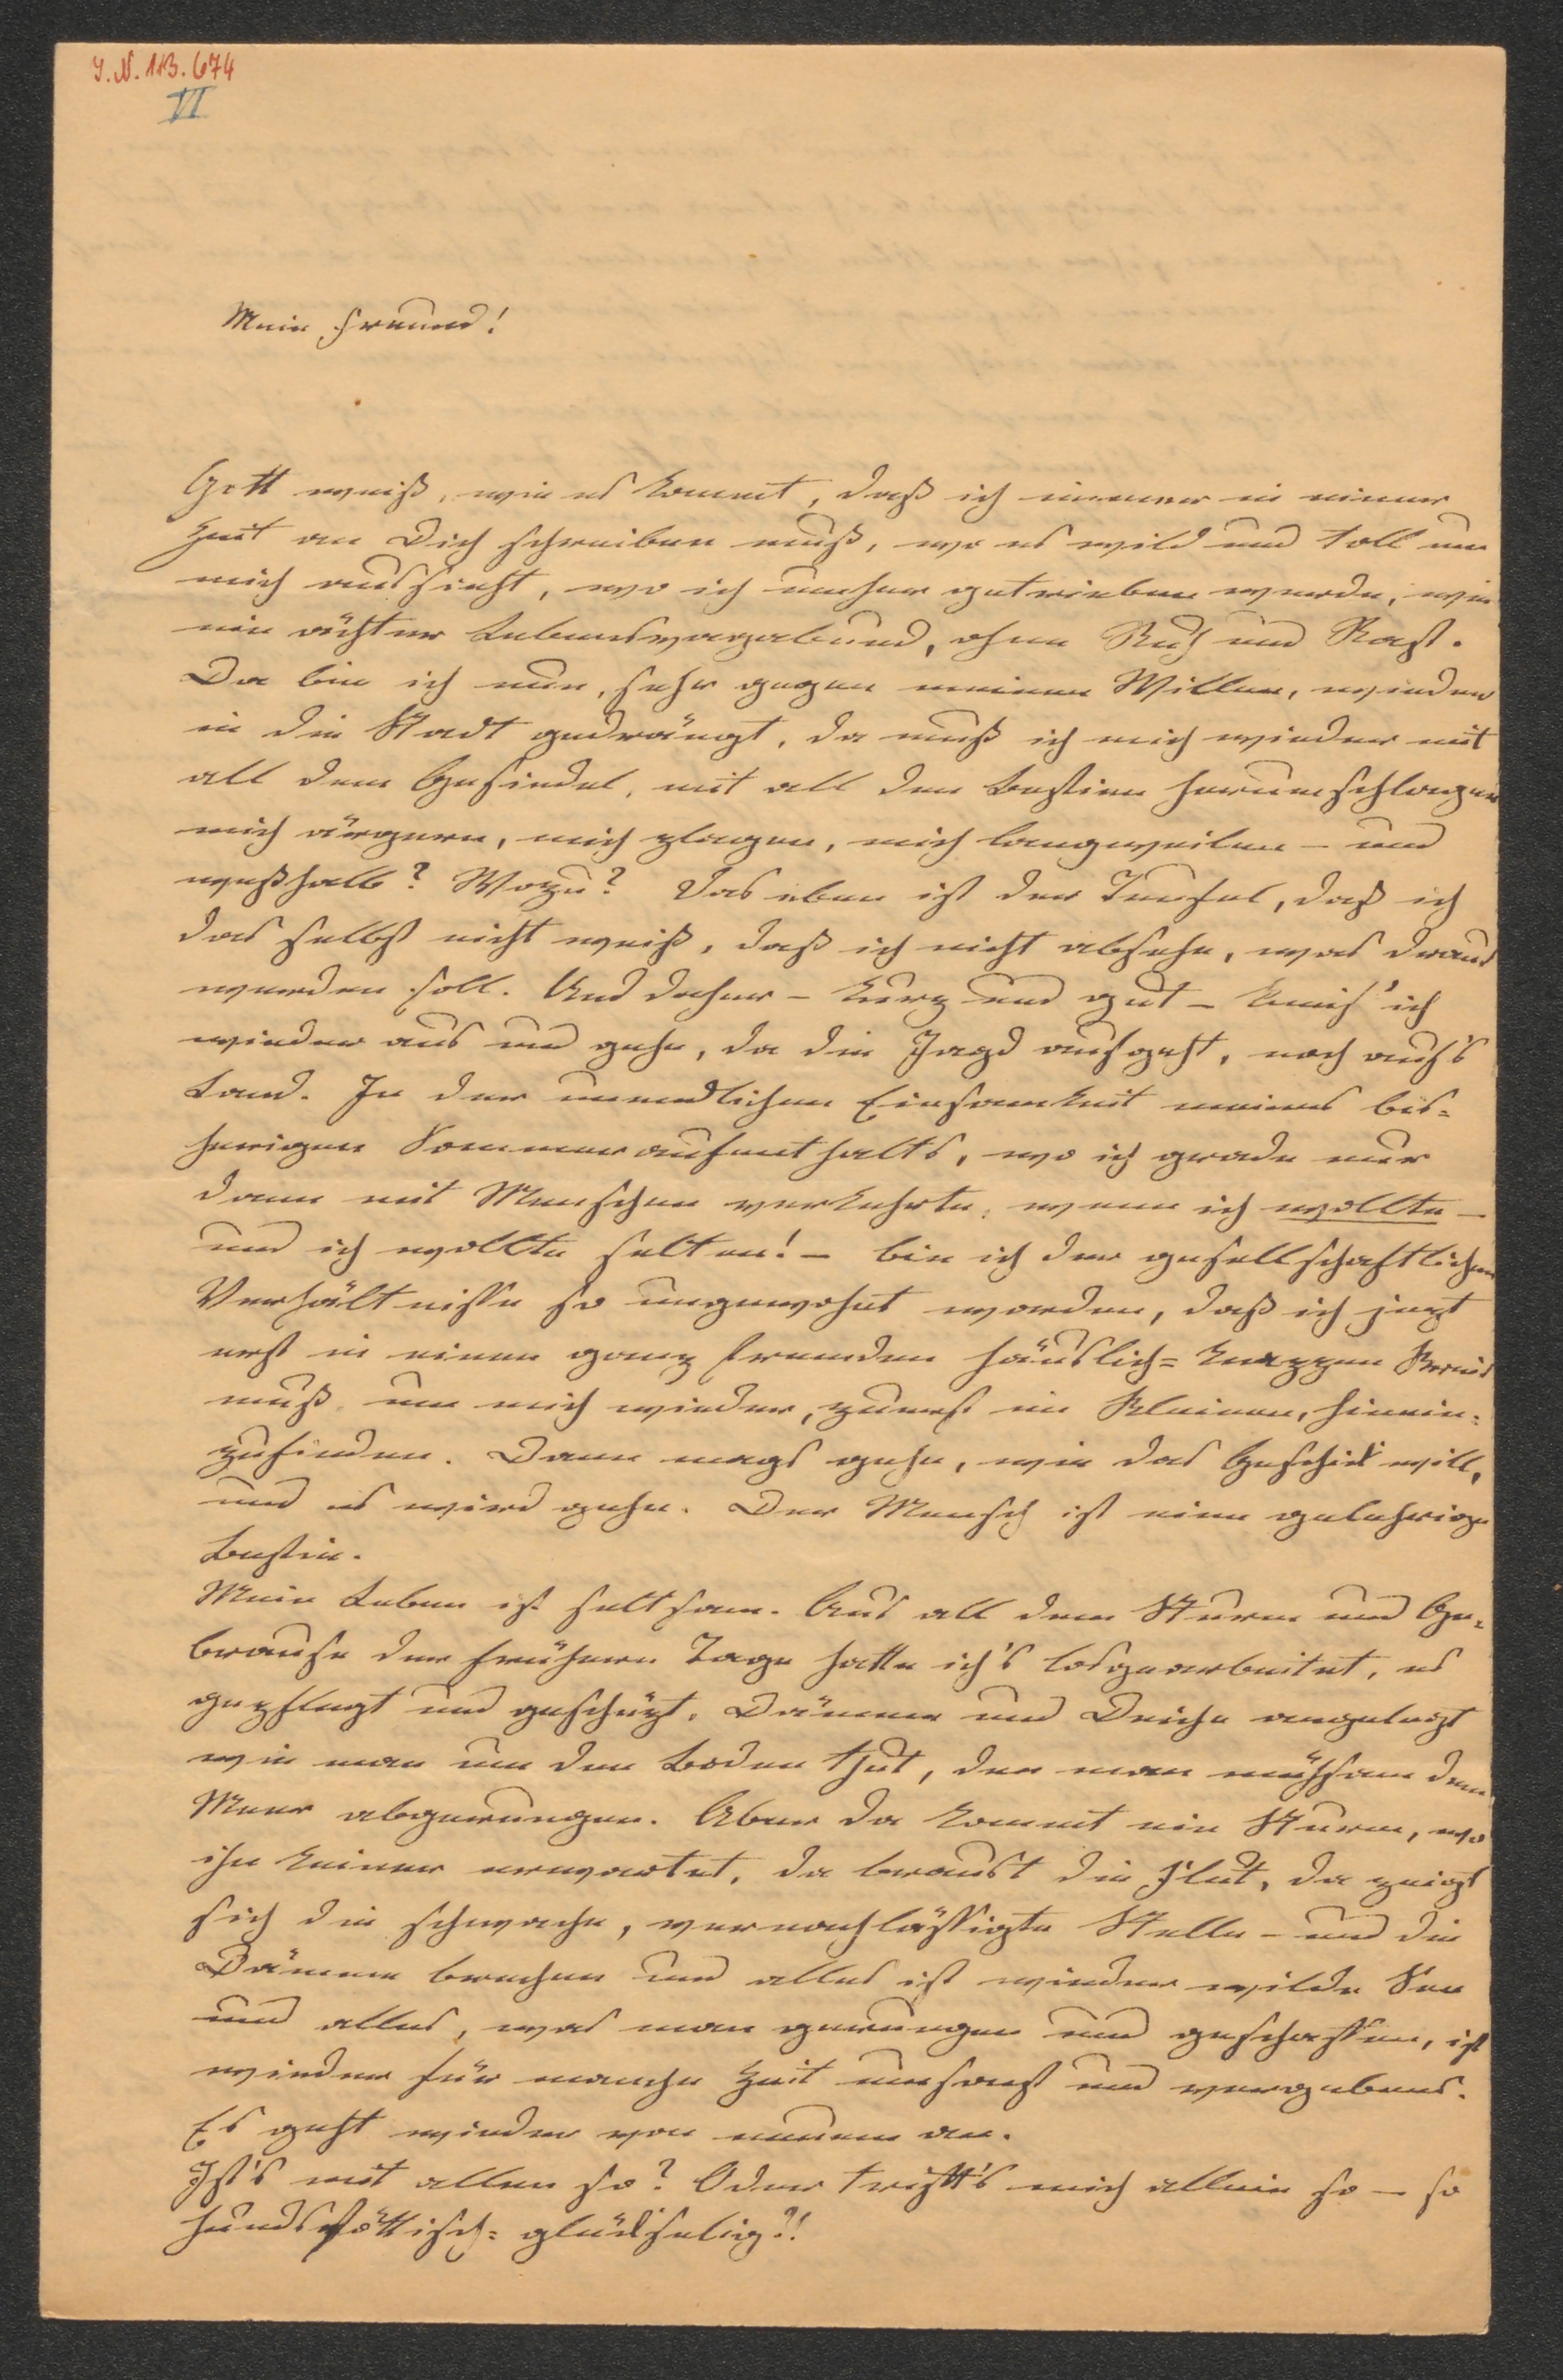 I. N. 113.674
VI
Mein Freund!
Gott weiß, wie es kommt, daß ich immer in einer
Zeit an Dich schreiben muß, wo es wild und toll um
mich aussieht, wo ich umher getrieben werde, wie
ein ächter Lebensvagabund, ohne Ruh und Rast.
Da bin ich nun, sehr gegen meinen Willen, wieder
in die Stadt gedrängt, da muß ich mich wieder mit
all dem Gesindel, mit all den Bestien herumschlagen
mich ärgern, mich plagen, mich langweilen – und
weßhalb? Wozu? Das eben ist der Teufel, daß ich
das selbst nicht weiß, daß ich nicht absehe, was draus
werden soll. Und daher – kurz und gut – kneif' ich
wieder aus und gehe, da die Jagd aufgeht, noch auf's
Land. In der unendlichen Einsamkeit meines bis=
herigen Sommeraufenthalts, wo ich grade nur
dann mit Menschen verkehrte, wenn ich wollte –
und ich wollte selten! – bin ich der gesellschaftlichen
Verhältnisse so ungewohnt worden, daß ich jezt
erst in einen ganz fremden häuslich= knappen Kreis
muß, um mich wieder, zuerst im Kleinen, hinein=
zufinden. Dann mags gehe, wie das Geschick will,
und es wird gehe. Der Mensch ist eine gelehrige
Bestie.
Mein Leben ist seltsam. Aus all dem Sturm und Ge=
brause der frühern Tage hatte ich's losgearbeitet, es
gepflegt und geschüzt, Dämme und Deiche angelegt
wie man um den Boden thut, den man mühsam dem
Meer abgerungen. Aber da kommt ein Sturm, wo
ihn keiner erwartet, da braust die Flut, da zeigt
sich die schwache, vernachlässigte Stelle – und die
Dämme brechen und alles ist wieder wilde See
und alles, was man gerungen und geschaffen, ist
wieder für manche Zeit umsonst und vergebens.
Es geht wieder von neuem an.
Ist's mit allen so? Oder trifft's mich allein so – so
hundsföttisch= glückselig?!